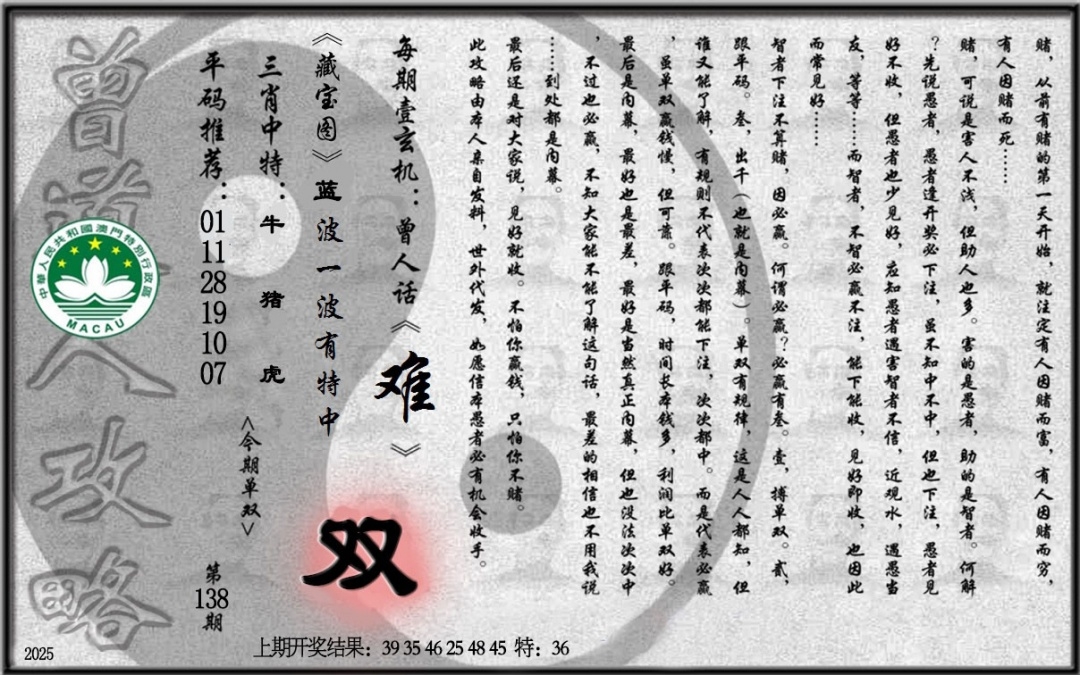 赌，从前有赌的第一天开始，就注定有人因赌而富，有人因赌而穷，
有人因赌而死……
赌，可说是害人不浅，但助人也多。害的是愚者，助的是智者。何解
？先说愚者，愚者逢开奖必下注，虽不知中不中，但也下注，愚者见
好不收，但愚者也少见好，应知愚者遇害智者不信，近观水，遇愚当
友，等等……而智者，不智必赢不注，能下能收，见好即收，也因此
而常见好……
智者下注不算赌，因必赢。何谓必赢？必赢有叁。壹，搏单双。贰，
跟平码。叁，出千（也就是内幕）。单双有规律，这是人人都知，但
谁又能了解，有规则不代表次次都能下注，次次都中。而是代表必赢
，虽单双赢钱慢，但可靠。跟平码，时间长本钱多，利润比单双好。
最后是内幕，最好也是最差，最好是当然真正内幕，但也没法次次中
，不过也必赢，不知大家能不能了解这句话，最差的相信也不用我说
……到处都是内幕。
最后还是对大家说，见好就收。不怕你赢钱，只怕你不赌。
此攻略由本人亲自发料，世外代发，如愿信本愚者必有机会收手。
每期壹玄机：曾人话《难》
《藏宝图》蓝波一波有特中
双
三肖中特：牛 猪 虎
<今期单双>
平码推荐：01 11 28 19 10 07
第138期
曾道人攻略
中華人民共和國澳門特別行政區
MACAU
上期开奖结果：39 35 46 25 48 45 特：36
2025